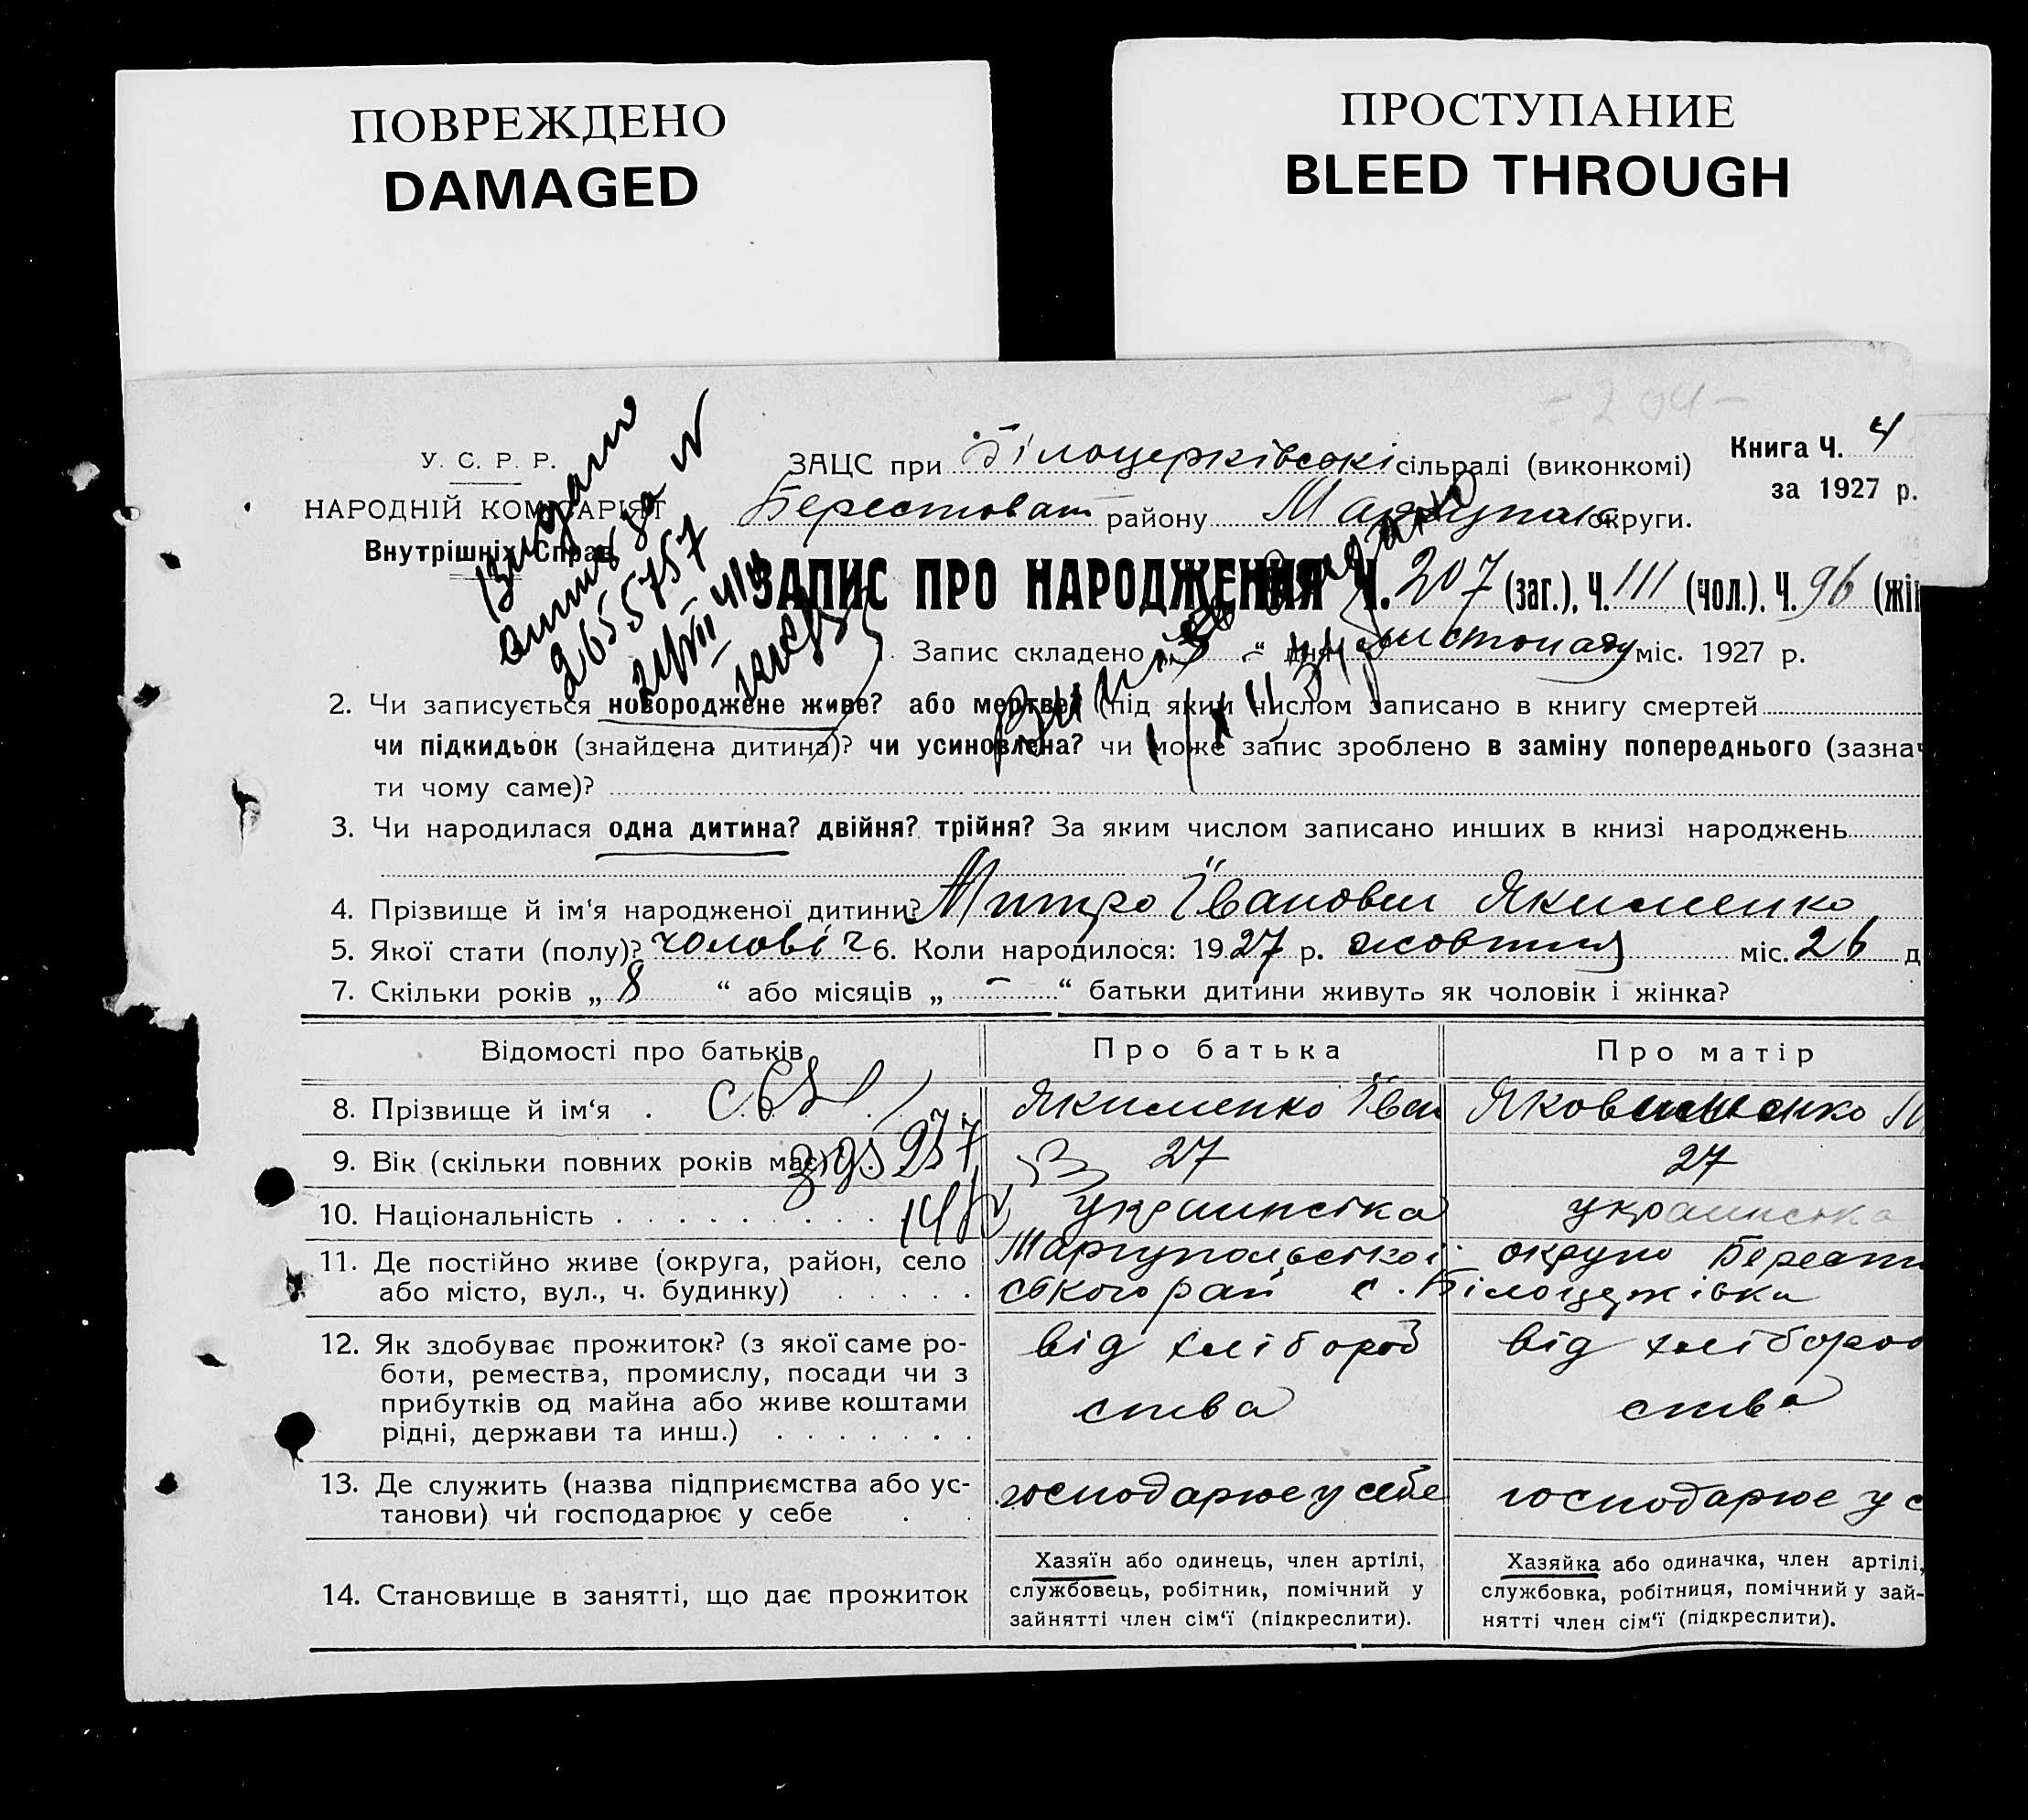 ПОВРЕЖДЕНО
DAMAGED
ПРОСТУПАНИЕ
BLEED THROUGH
- 204 -
У. С. Р. Р.
НАРОДНІЙ КОМІСАРІЯТ
Внутрішніх Справ
ЗАЦС при Білоцерківські сільраді (виконкомі)
Книга Ч. 4
за 1927 р.
Берестоват району Маріуполь округи.
Видано
2655757
ЗАПИС ПРО НАРОДЖЕННЯ Ч. 207 (заг.), Ч. 111 (чол.). Ч. 96 (жін
1. Запис складено „ “ дня листопаду міс. 1927 р.
2. Чи записується новороджене живе? або мертве? (під яким числом записано в книгу смертей
чи підкидьок (знайдена дитина)? чи усиновлена? чи може запис зроблено в заміну попереднього (зазнач
ти чому саме)?
3. Чи народилася одна дитина? двійня? трійня? За яким числом записано инших в книзі народжень
4. Прізвище й ім‘я народженої дитини? Митро Іванович Якименко
5. Якої стати (полу)? чоловіч 6. Коли народилося: 1927 р. жовтня міс. 26 д
7. Скільки років „ 8 “ або місяців „ - “ батьки дитини живуть як чоловік і жінка?
Відомості про батьків
Про батька
Про матір
8. Прізвище й ім‘я . Якименко Іван
9. Вік (скільки повних років має) 27 27
10. Національність украинська украинська
11. Де постійно живе (округа, район, село Маріупольської округи Берести
або місто, вул., ч. будинку) ського рай с. Білоцерківка
12. Як здобуває прожиток? (з якої саме ро- від хлібороб від хлібороб
боти, ремества, промислу, посади чи з
прибутків од майна або живе коштами ства ства
рідні, держави та инш.)
13. Де служить (назва підприємства або ус- господарює у себе господарює у с
танови) чи господарює у себе
14. Становище в занятті, що дає прожиток
Хазяїн або одинець, член артілі,
службовець, робітник, помічний у
зайнятті член сім‘ї (підкреслити).
Хазяйка або одиначка, член артілі,
службовка, робітниця, помічний у зай-
нятті член сім‘ї (підкреслити).